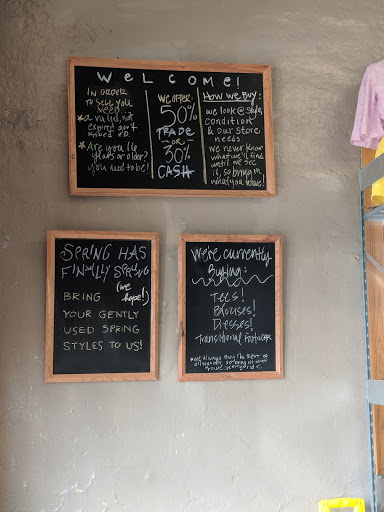 WELCOME!
IN ORDER
TO SELL YOU
NEED:
★ a valid, not
expired gov't
issued ID.
★ Are you 16
years or older?
you need to be!
WE OFFER:
50%
TRADE
OR
30%
CASH
HOW WE BUY:
we look @ style,
condition
& our store
needs
we never know
what we'll find
until we see
it, so bring in
what you have!
SPRING HAS
FINALLY SPRUNG
(we
hope!)
BRING
YOUR GENTLY
USED SPRING
STYLES TO US!
We're currently
Buying:
Tees!
Blouses!
Dresses!
Transitional Footwear
*We always buy the best of
all seasons, so bring us what
you've